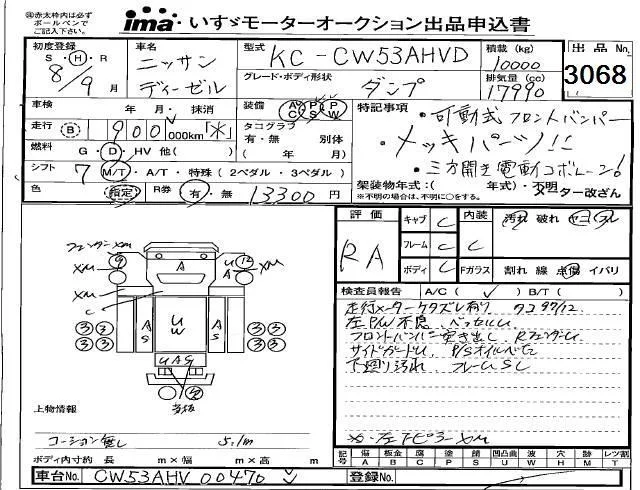 ㊟赤太枠内は必ず
ボールペンで
ご記入下さい。
ima いすゞモーターオークション出品申込書
初度登録 車名 ニッサン ディーゼル 型式 KC-CW53AHVD 積載(kg) 10000 出品No. 3068
S・H・R 8/9月
グレード・ボディ形状 ダンプ 排気量(cc) 17990
車検 年・月・抹消 装備 AC PS PW
特記事項 ・可動式フロントバンパー
走行 B 900,000km「*」 タコグラフ 有・無 別体
・メッキパーツ!!
燃料 G・D・HV 他( ) ( 年 月)
シフト 7 M/T・A/T・特殊(2ペダル・3ペダル)
・三方開き電動コボレーン!
色 指定 R券 有・無 13300円
架装物年式:( 年式)・不明 メーター改ざん
※不明の場合は、不明に○をする。
評価 RA キャブ C 内装 汚れ 破れ コゲ スレ
フレーム C C
ボディ C Fガラス 割れ 線 点傷 イバリ
検査員報告 A/C( ✓ ) B/T( )
走行メーターケタズレ有り タコ97/12
左P/W不良
フロントバンパー突き出し
サイドガード P/Sオイル
下廻り汚れ フレームSC
フェンダーXM
9 12
XM A UA XM
XM
C
33 33 AS UW AS 33 33
33 33
UAG
上物情報
コーション無し 5.1m
ボディ内寸約 長 m×幅 m×高 m
記号 傷 A 板金 B 腐 C 塗 P 錆 S 凹凸曲 U 波 W 穴 H 跡 M レツ割 T
車台No. CW53AHV00470 登録No.